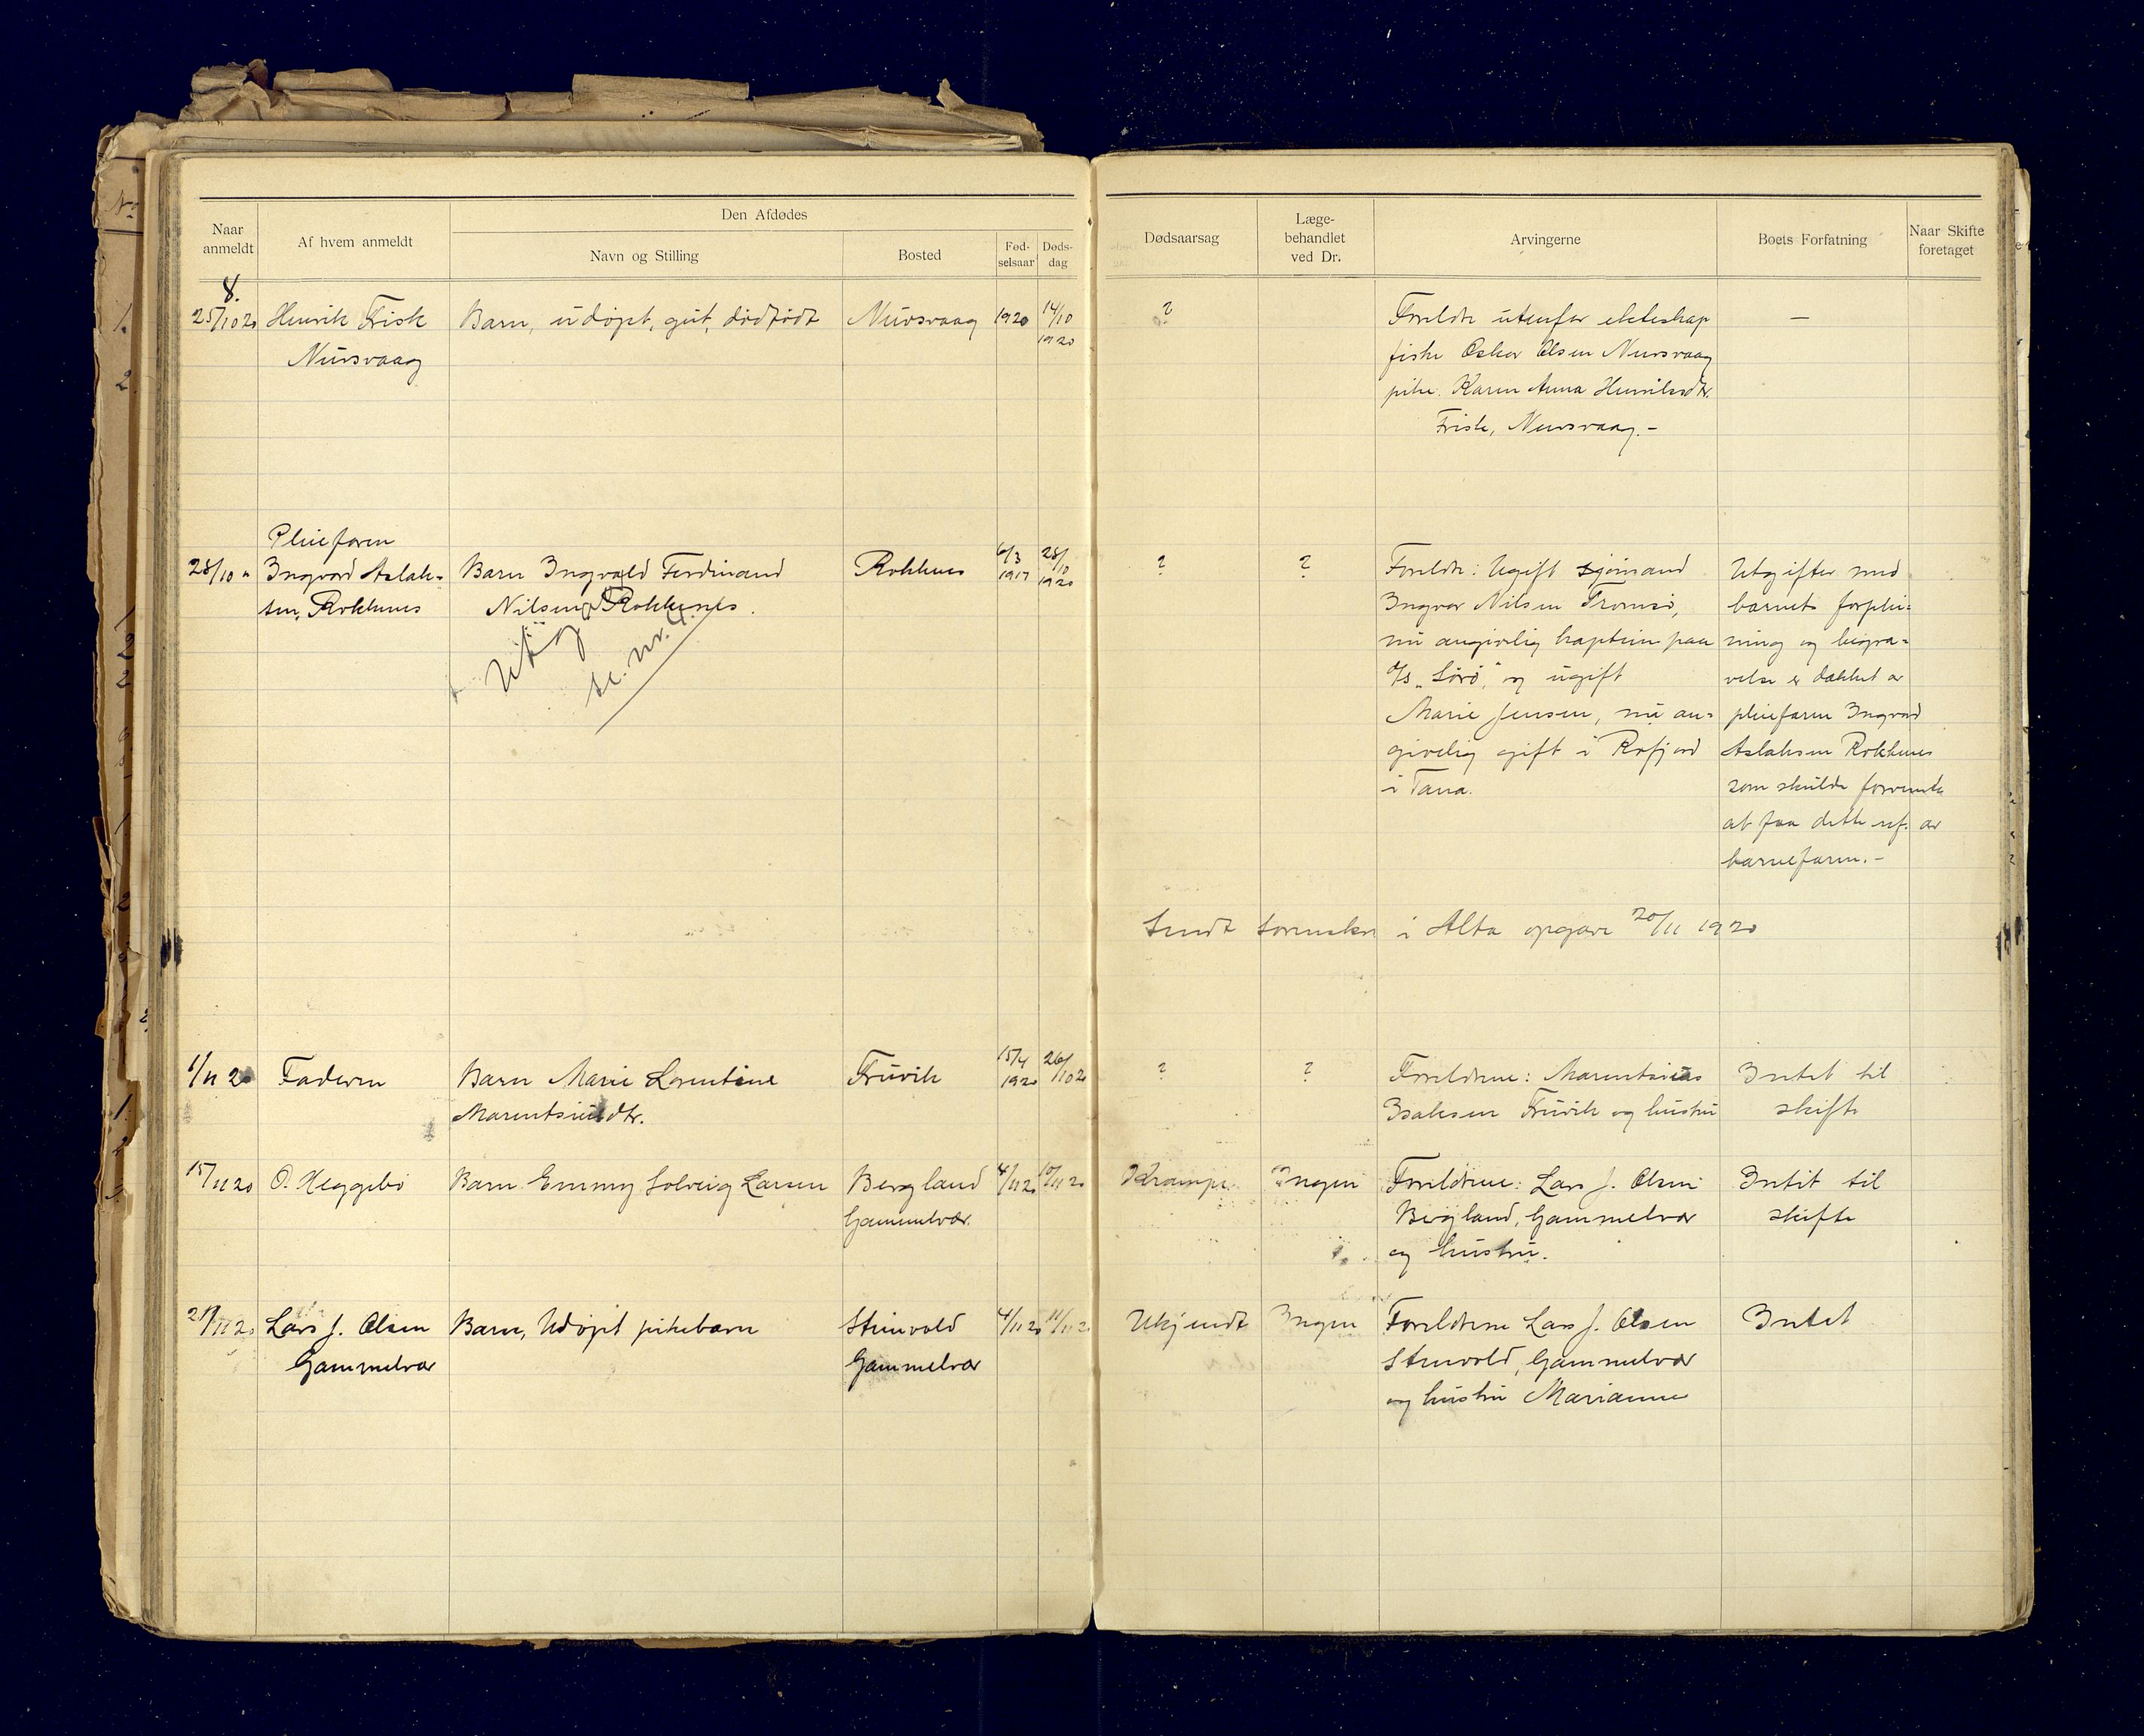 Naar anmeldt
Af hvem anmeldt
Den Afdødes
Navn og Stilling
Bosted
Fød-
selsaar
Døds-
dag
Dødsaarsag
Læge-
behandlet
ved Dr.
Arvingerne
Boets Forfatning
Naar Skifte
foretaget
8.
25/10 20
Henrik Frisk
Nuvsvaag
Barn, udøpt, gut, dødfødt
Nuvsvaag
1920
14/10
1920
?
Foreldre utenfor ekteskap
fisker Oskar Olsen Nuvsvaag
pike Karen Anna Henriksdtr.
Frisk, Nuvsvaag.-
—
28/10 "
Pleiefaren
Ingvard Aslak-
sen, Rokknes
Barn Ingvald Ferdinand
Nilsen, Rokknes.
Utg
se nr. 4.
Rokknes
6/3
1917
28/10
1920
?
?
Foreldre: Ugift sjømand
Ingvar Nilsen Tromsø,
nu angivelig kaptein paa
d/s „Sørø", og ugift
Marie Jensen, nu an-
givelig gift i
i Tana.
Utgifter med
barnets forplei-
ning og begra-
velse er dækket av
pleiefaren Ingvard
Aslaksen Rokknes
som skulde forvente
at faa dette ref. av
barnefaren.-
Sendt sorenskr i Alta opgave 20/11 1920
1/11 20
Faderen
Barn Marie Lorentine
Marentsiusdtr.
Truvik
15/4
1920
26/10 20
?
?
Foreldrene: Marentsius
Isaksen Truvik og hustru
Intet til
skifte
15/11 20
O. Heggebø
Barn Emmy Solveig Larsen
Bergland
Gammelvær.
4/11 20
10/11 20
Krampe
Ingen
Foreldrene: Lars J. Olsen
Bergland, Gammelvær
og hustru.
Intet til
skifte
Lars J. Olsen
Gammelvær
Barn, Udøpt pikebarn
Stenvold
Gammelvær
4/11 20
11/11 2
Ukjendt
Ingen
Foreldrene Lars J. Olsen
Stenvold, Gammelvær
og hustru Marianne
Intet